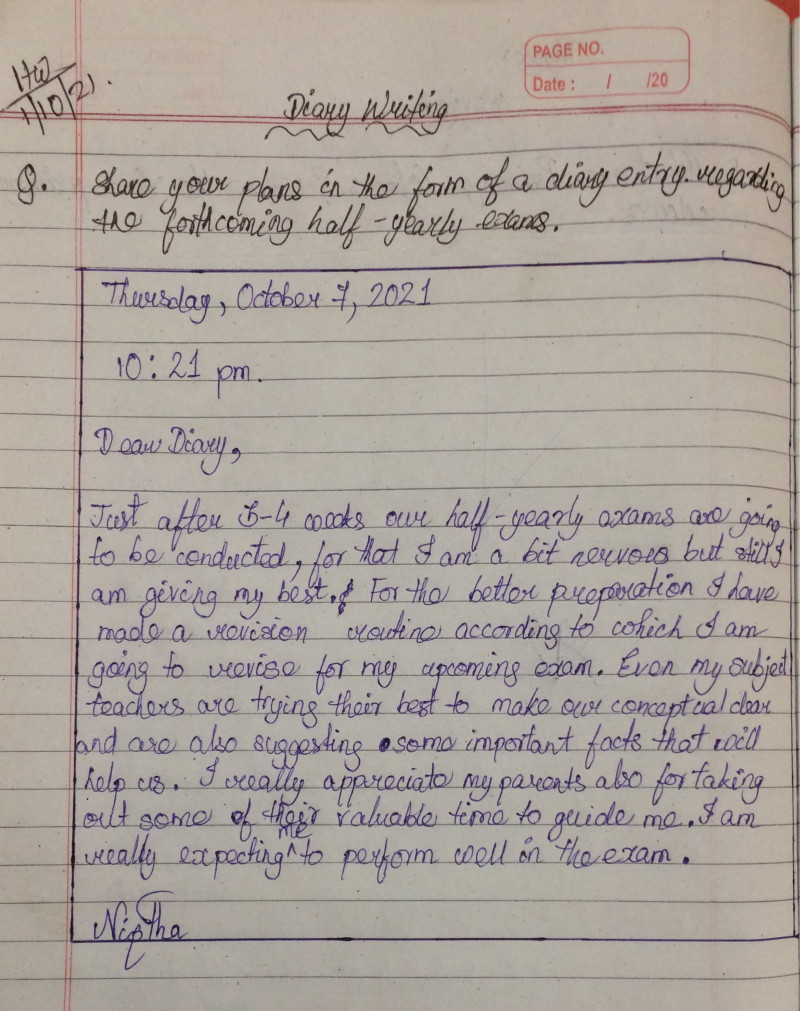 PAGE NO.
Date : / /20
HW
1/10/21.
Diary Writing
Q. Share your plans in the form of a diary entry. regarding
the forthcoming half-yearly exams.
Thursday, October 7, 2021
10:21 pm.
Dear Diary,
Just after 3-4 weeks our half-yearly exams are going
to be conducted, for that I am a bit nervous but still I
am giving my best. For the better preparation I have
made a revision routine according to which I am
going to revise for my upcoming exam. Even my subject
teachers are trying their best to make our conceptual clear
and are also suggesting some important facts that will
help us. I really appreciate my parents also for taking
out some of their valuable time to guide me. I am
really expecting ^me to perform well in the exam.